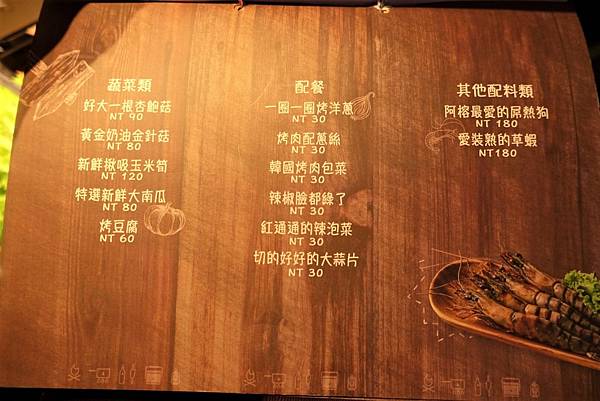 蔬菜類
好大一根杏鮑菇
NT 90
黃金奶油金針菇
NT 80
新鮮揪吸玉米筍
NT 120
特選新鮮大南瓜
NT 80
烤豆腐
NT 60
配餐
一圈一圈烤洋蔥
NT 30
烤肉配蔥絲
NT 30
韓國烤肉包菜
NT 30
辣椒臉都綠了
NT 30
紅通通的辣泡菜
NT 30
切的好好的大蒜片
NT 30
其他配料類
阿榕最愛的屌熱狗
NT 180
愛裝熟的草蝦
NT180